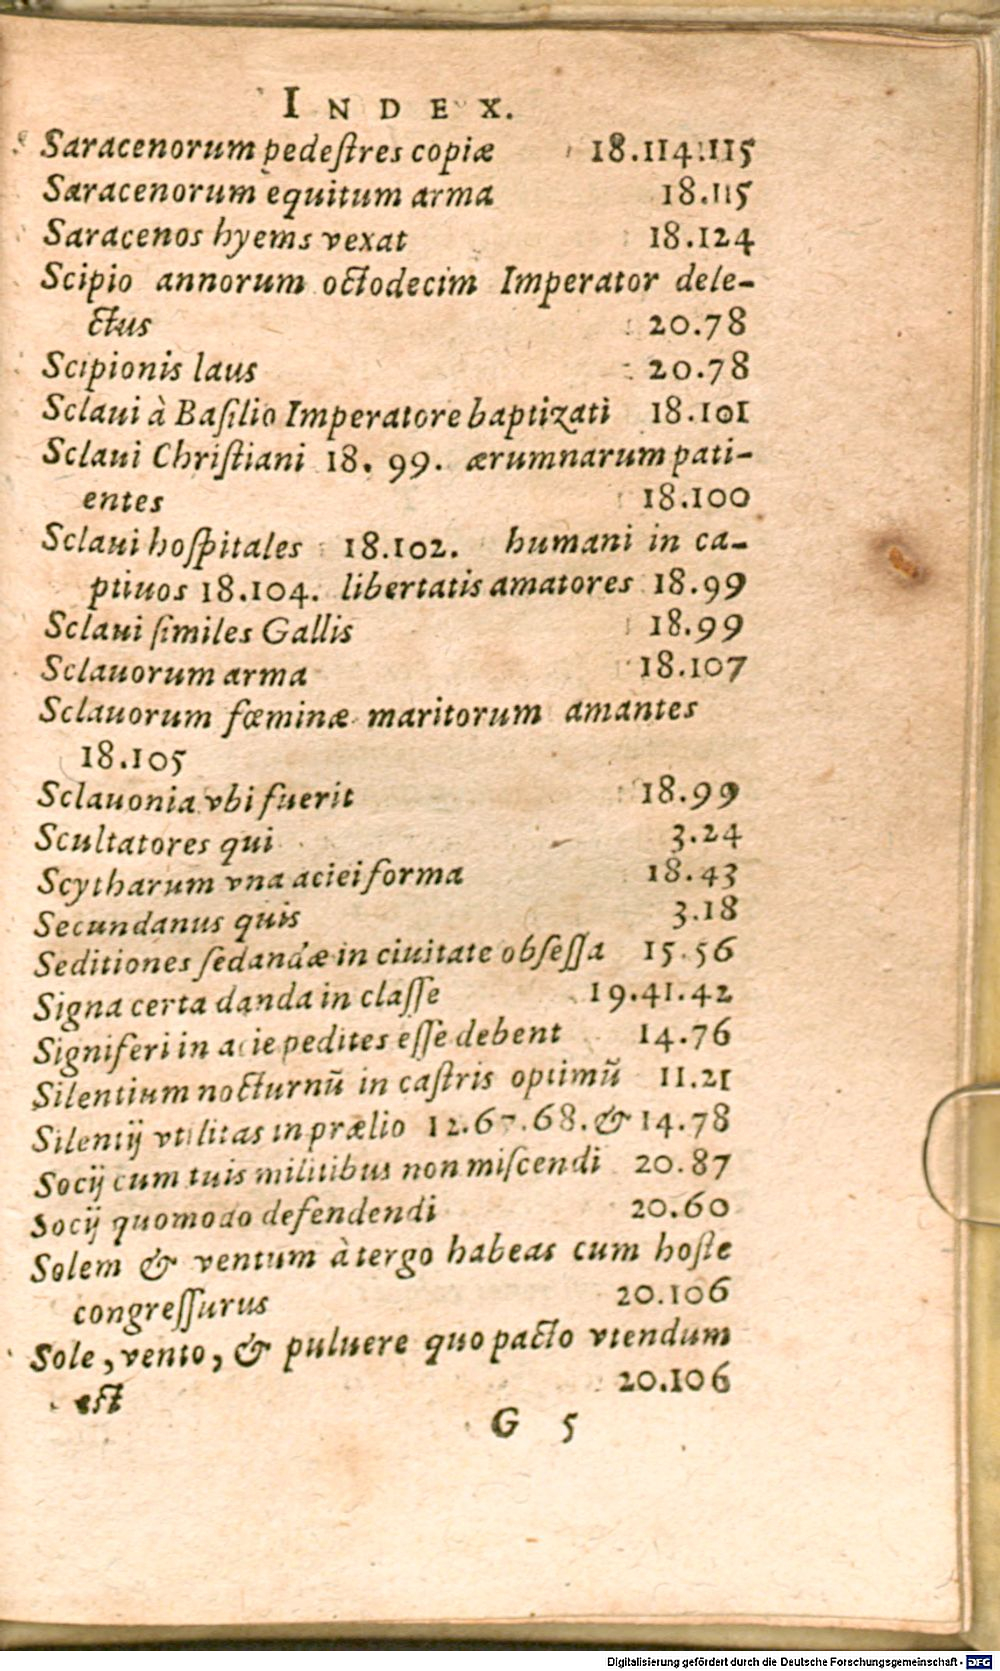 INDEX.
Saracenorum pedeſtres copiæ 18.114.115
Saracenorum equitum arma 18.115
Saracenos hyems vexat 18.124
Scipio annorum octodecim Imperator dele-
ctus 20.78
Scipionis laus 20.78
Sclaui à Baſilio Imperatore baptizati 18.101
Sclaui Chriſtiani 18. 99. ærumnarum pati-
entes 18.100
Sclaui hoſpitales 18.102. humani in ca-
ptiuos 18.104. libertatis amatores 18.99
Sclaui ſimiles Gallis 18.99
Sclauorum arma 18.107
Sclauorum fœminæ maritorum amantes
18.105
Sclauonia vbi fuerit 18.99
Scultatores qui 3.24
Scytharum vna aciei forma 18.43
Secundanus quis 3.18
Seditiones ſedandæ in ciuitate obſeſſa 15.56
Signa certa danda in claſſe 19.41.42
Signiferi in acie pedites eſſe debent 14.76
Silentium nocturnũ in caſtris optimũ 11.21
Silentij vtilitas in prælio 12.67.68. & 14.78
Socij cum tuis militibus non miſcendi 20.87
Socij quomodo defendendi 20.60
Solem & ventum à tergo habeas cum hoſte
congreſſurus 20.106
Sole, vento, & puluere quo pacto vtendum
eſt 20.106
G 5
Digitalisierung gefördert durch die Deutsche Forschungsgemeinschaft - DFG